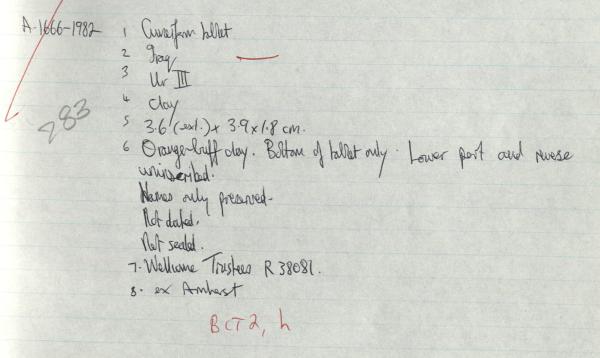 A.1666-1982
1 Cuneiform tablet
2 Iraq
3 Ur III
4 Clay
5 3.6 (ext.) x 3.9 x 1.8 cm.
6 Orange-buff clay. Bottom of tablet only. Lower part and reverse
uninscribed.
Names only preserved.
Not dated.
Not sealed.
7. Wellcome Trustees R 38081.
8. ex Amherst
283
BCT2, h